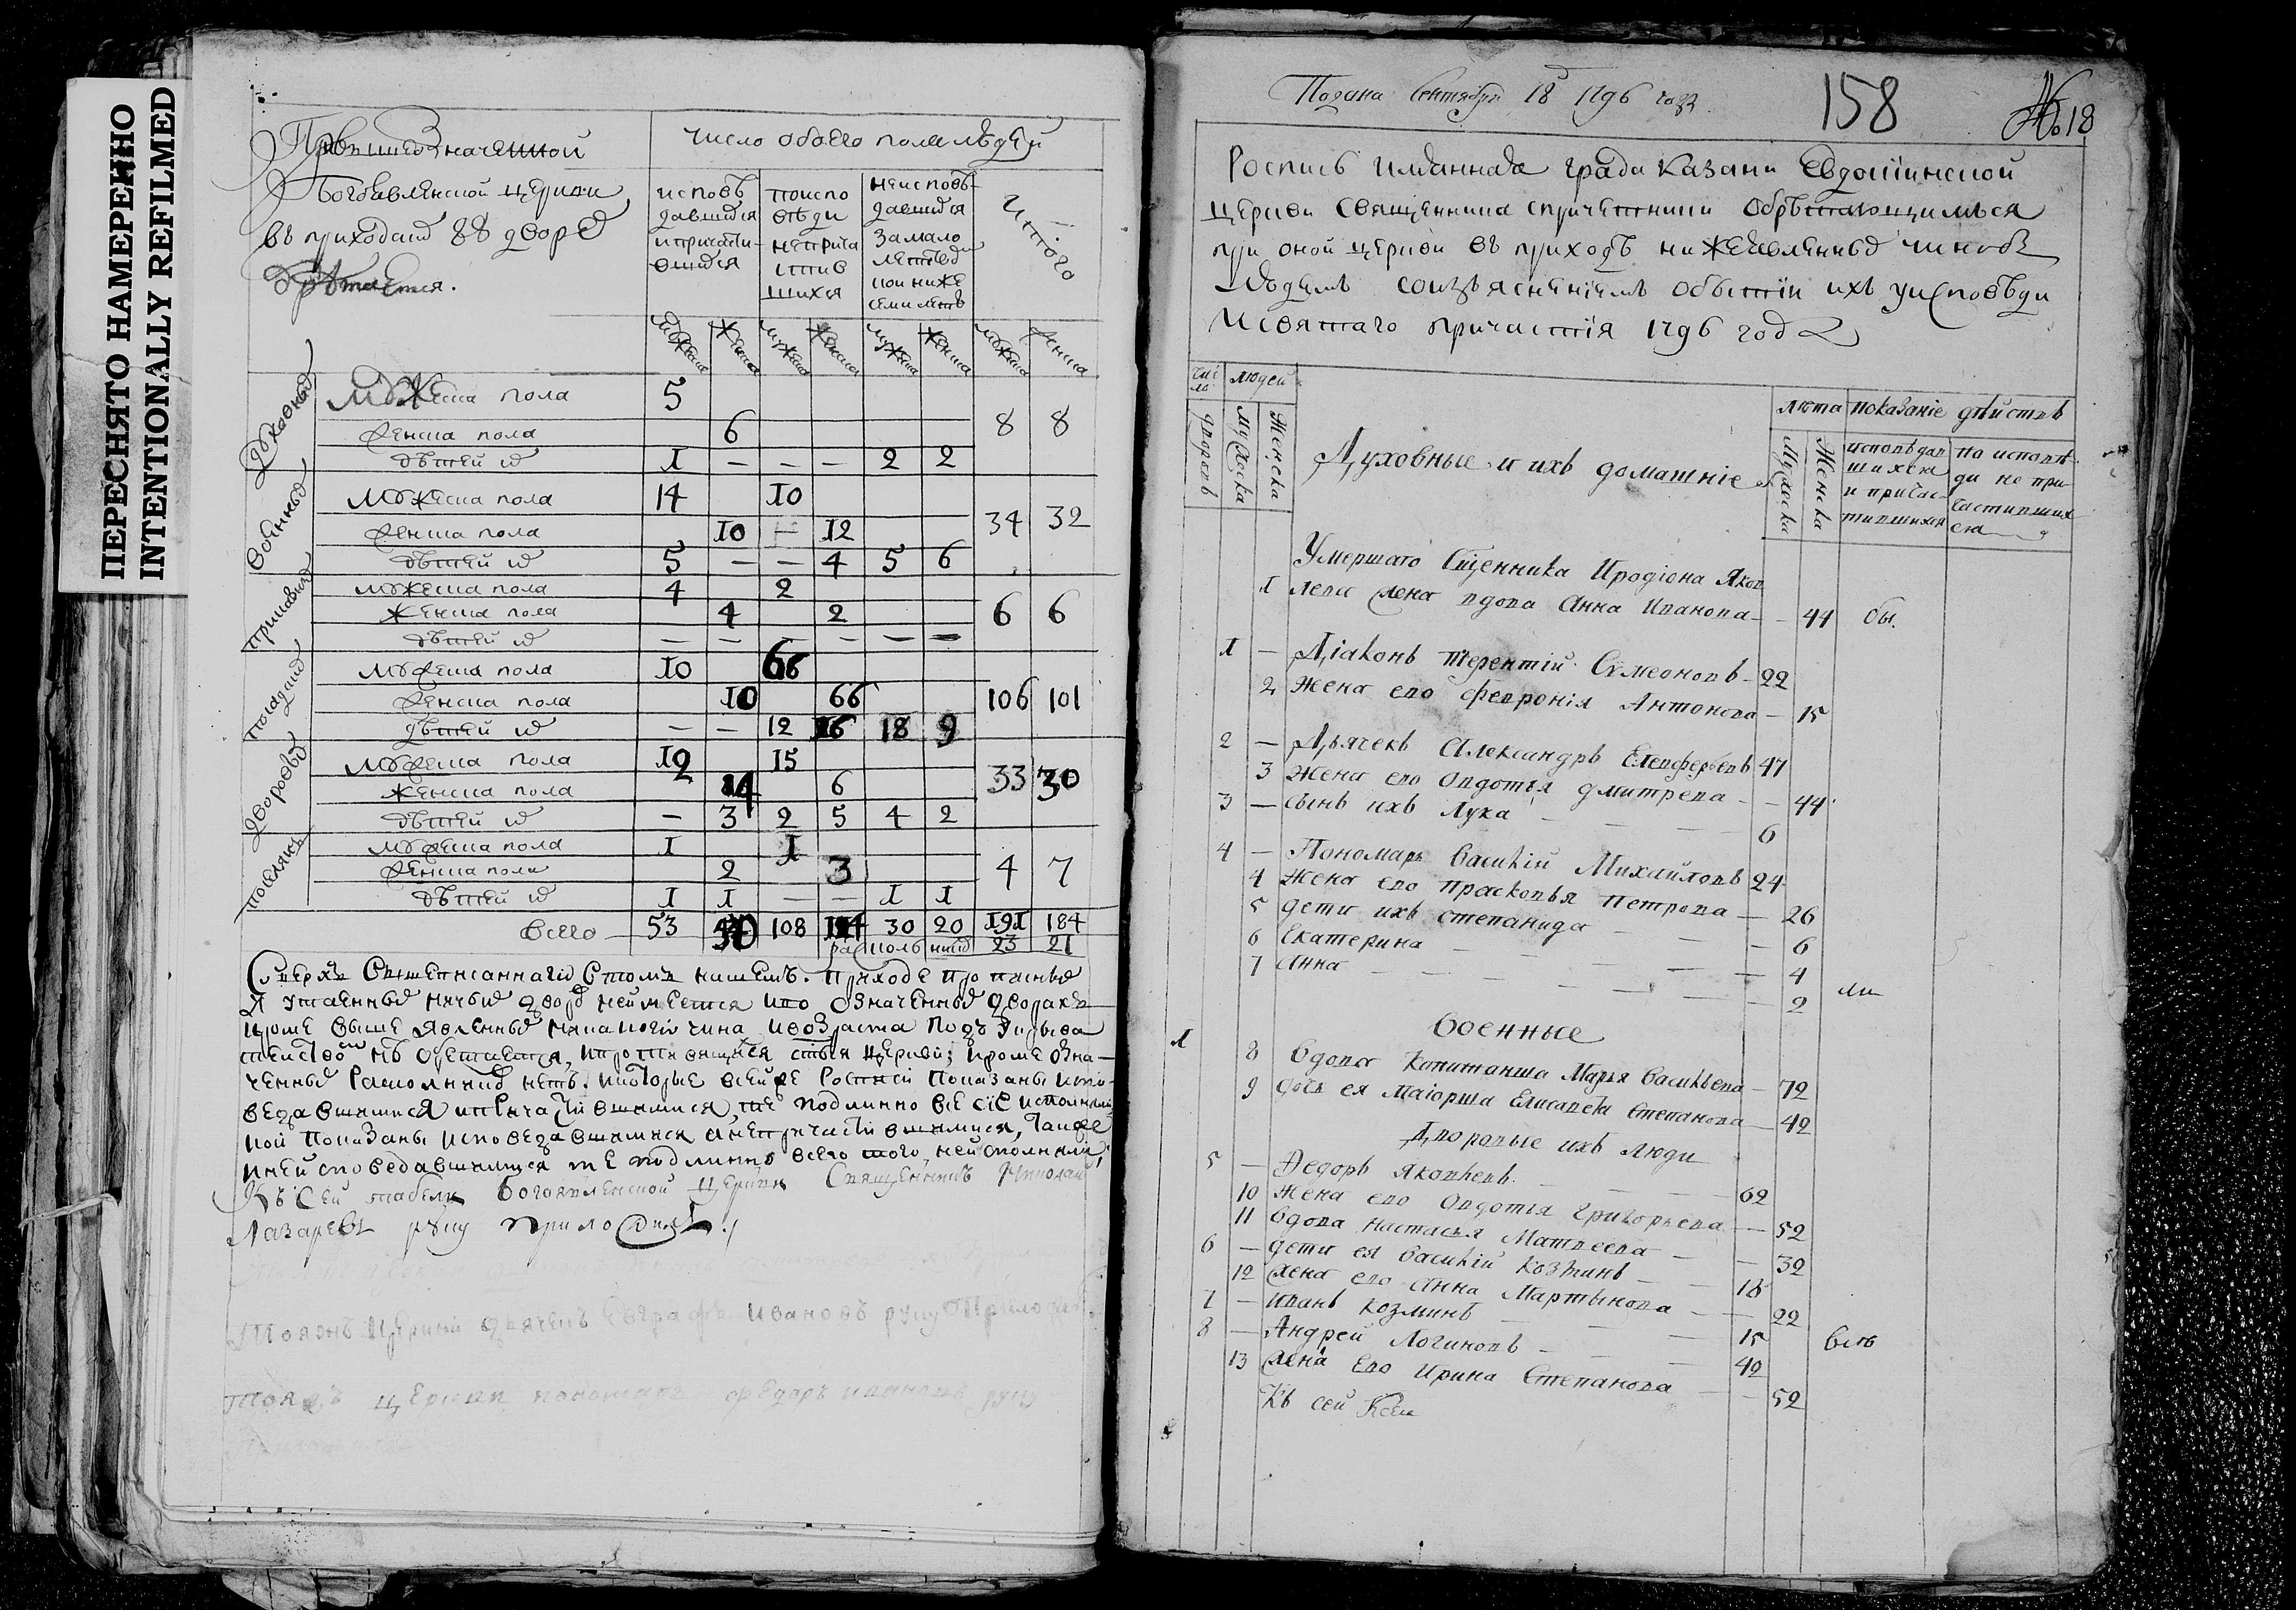 ПЕРЕСНЯТО НАМЕРЕННО
INTENTIONALLY REFILMED
При вышеозначенной
Богоявленской церкви
въ приходахъ 88 дворѣ
число обоего пола людей
исповѣ
давшихся
и причасти-
вшихся
по испо
вѣди
не прича
стив
шихся
неисповѣ-
давшихся
за мало
лѣтствомъ
семи лѣтъ
итого
мужеска женска мужеска женска мужеска женска мужеска женска
духовныхъ
мужеска пола 5 8 8
женска пола 6
дѣтей их 1 — — — 2 2
военныхъ
мужеска пола 14 10 34 32
женска пола 10 — 12
дѣтей их 5 — — 4 5 6
приказныхъ
мужеска пола 4 2 6 6
женска пола 4 2
дѣтей их — — — — — —
посадцкихъ
мужеска пола 10 66 106 101
женска пола 10 66
дѣтей их — — 12 16 18 9
дворовыхъ
мужеска пола 12 15 33 30
женска пола 14 6
дѣтей их — 3 2 5 4 2
поселянъ
мужеска пола 1 1 4 7
женска пола 2 3
дѣтей их 1 1 — — 1 1
всего 53 108 30 20 191 184
раскольниковъ 23 21
Сверхъ вышеписаннаго въ томъ нашемъ приходе прописныхъ
и утаенныхъ ничьихъ дворовъ не имеется и по означеннымъ дворахъ
кроме выше явленныхъ никакого чина и возраста подъ укрыва
тельствомъ не обретается, и противящихся святыя церкви, кроме озна-
ченныхъ раскольниковъ нетъ, и которые в сей же росписи показаны испо-
ведавшимися и причастившимися, те подлинно все сіе исполнили,
кои показаны исповедавшимися а непричастившимися, также
и неисповедавшимися те подлинно всего того неисполнили,
Къ сей табели Богоявленской церкви Священникъ Николай
Лазаревъ руку приложилъ.
Тояжъ церкви дьячекъ Евграфъ Ивановъ руку приложилъ.
Тояжъ церкви пономарь Федоръ Ивановъ руку
Подана Сентября 18 1796 года
158
№ 18
Роспись имянная града Казани Евдокіинской
церкви священника спричетники обрѣтающимъся
при оной церкви въ приходѣ нижеявленныхъ чиновъ
людемъ соизъясненіемъ обытіи ихъ у исповѣди
и святаго причастія 1796 года
число людей
дворовъ
мужеска
женска
Духовные и ихъ домашніе
лѣта
показаніе дѣйствъ
мужеска
женска
исповѣдав
шихся
и причас-
тившихся
по исповѣ
ди не при
частивших
ся
Умершаго Сщенника Иродіона Яков
1 лева жена вдова Анна Иванова — 44 бы.
1 — Діаконъ Терентій Сумеоновъ — 22
2 жена ево Февронія Антонова — 15
2 — Дьячекъ Александръ Елевферьевъ 47
3 жена ево Овдотья Дмитрева — 44
3 — сынъ ихъ Лука — 6
4 — Пономарь Василій Михайловъ 24
4 жена ево Прасковья Петрова — 26
5 дети ихъ Степанида — 6
6 Екатерина — 4
7 Анна — 2
ли
Военные
1 8 Вдова Копитанша Марья Васильева — 72
9 дочь ея Маіорша Елисавета Степанова — 42
Дворовые ихъ люди
5 — Федоръ Яковлевъ — 62
10 жена ево Овдотья Григорьева — 52
11 Вдова Настасья Матвеева — 32
6 — дети ея Василій Козминъ — 18
12 жена ево Анна Мартынова — 22
7 — Иванъ Козминъ — 15
8 — Андрей Логиновъ — 42
всѣ
13 жена ево Ирина Степанова — 52
Къ сей